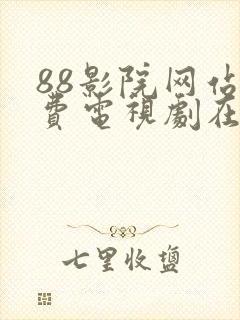 88影院网佔
費電視劇在
七里收鹽